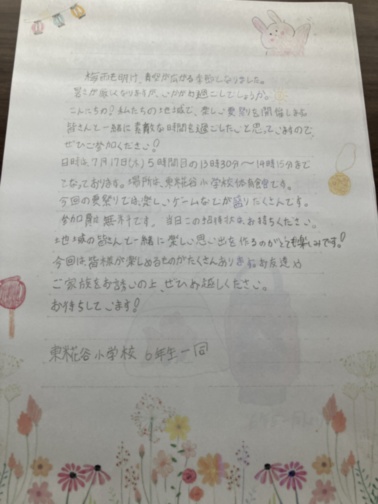 梅雨も明け、青空が広がる季節になりました。
暑さが厳しくなりますが、いかがお過ごしでしょうか。
こんにちは!私たちの地域で、楽しい夏祭りを開催します
皆さんで一緒に素敵な時間を過ごしたいと思っていますので、
ぜひご参加ください!
日時は7月17日(火)5時間目の13時30分〜14時15分まで
となっております。場所は、東糀谷小学校体育館です。
今回の夏祭りでは、楽しいゲームなどが盛りだくさんです。
参加費は無料です。当日この招待状をお持ちください。
地域の皆さんで一緒に楽しい思い出を作るのがとても楽しみです!
今回は皆様が楽しめるものがたくさんあります。お友達や
ご家族をお誘いの上、ぜひお越しください。
お待ちしています!
東糀谷小学校 6年生一同